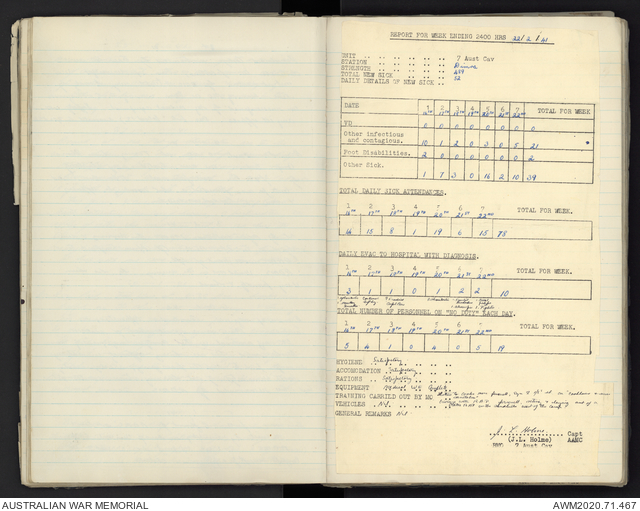 REPORT FOR WEEK ENDING 2400 HRS 22/2/41
UNIT .. .. .. .. .. .. 7 Aust Cav
STATION .. .. .. .. ..
STRENGTH .. .. .. .. ..
TOTAL NEW SICK .. .. .. 52
DAILY DETAILS OF NEW SICK..
DATE 1 2 3 4 5 6 7 TOTAL FOR WEEK
16th 17th 18th 19th 20th 21st 22nd
VD 0 0 0 0 0 0 0 0
Other infectious
and contagious. 10 1 2 0 3 0 5 21
Foot Disabilities. 2 0 0 0 0 0 0 2
Other Sick. 1 7 3 0 16 2 10 39
TOTAL DAILY SICK ATTENDANCES.
1 2 3 4 5 6 7 TOTAL FOR WEEK.
16th 17th 18th 19th 20th 21st 22nd
16 15 8 1 19 6 15 78
DAILY EVAC TO HOSPITAL WITH DIAGNOSIS.
1 2 3 4 5 6 7 TOTAL FOR WEEK.
16th 17th 18th 19th 20th 21st 22nd
3 1 1 0 1 2 2 10
TOTAL NUMBER OF PERSONNEL ON "NO DUTY" EACH DAY.
1 2 3 4 5 6 7 TOTAL FOR WEEK.
16th 17th 18th 19th 20th 21st 22nd
5 4 1 0 4 0 5 19
HYGIENE .. Satisfactory
ACCOMODATION .. Satisfactory
RATIONS .. Satisfactory
EQUIPMENT
TRAINING CARRIED OUT BY MO
VEHICLES .. Nil
GENERAL REMARKS Nil
J. L. Holme Capt
(J.L. Holme) AAMC
RMO 7 Aust Cav
AUSTRALIAN WAR MEMORIAL
AWM2020.71.467